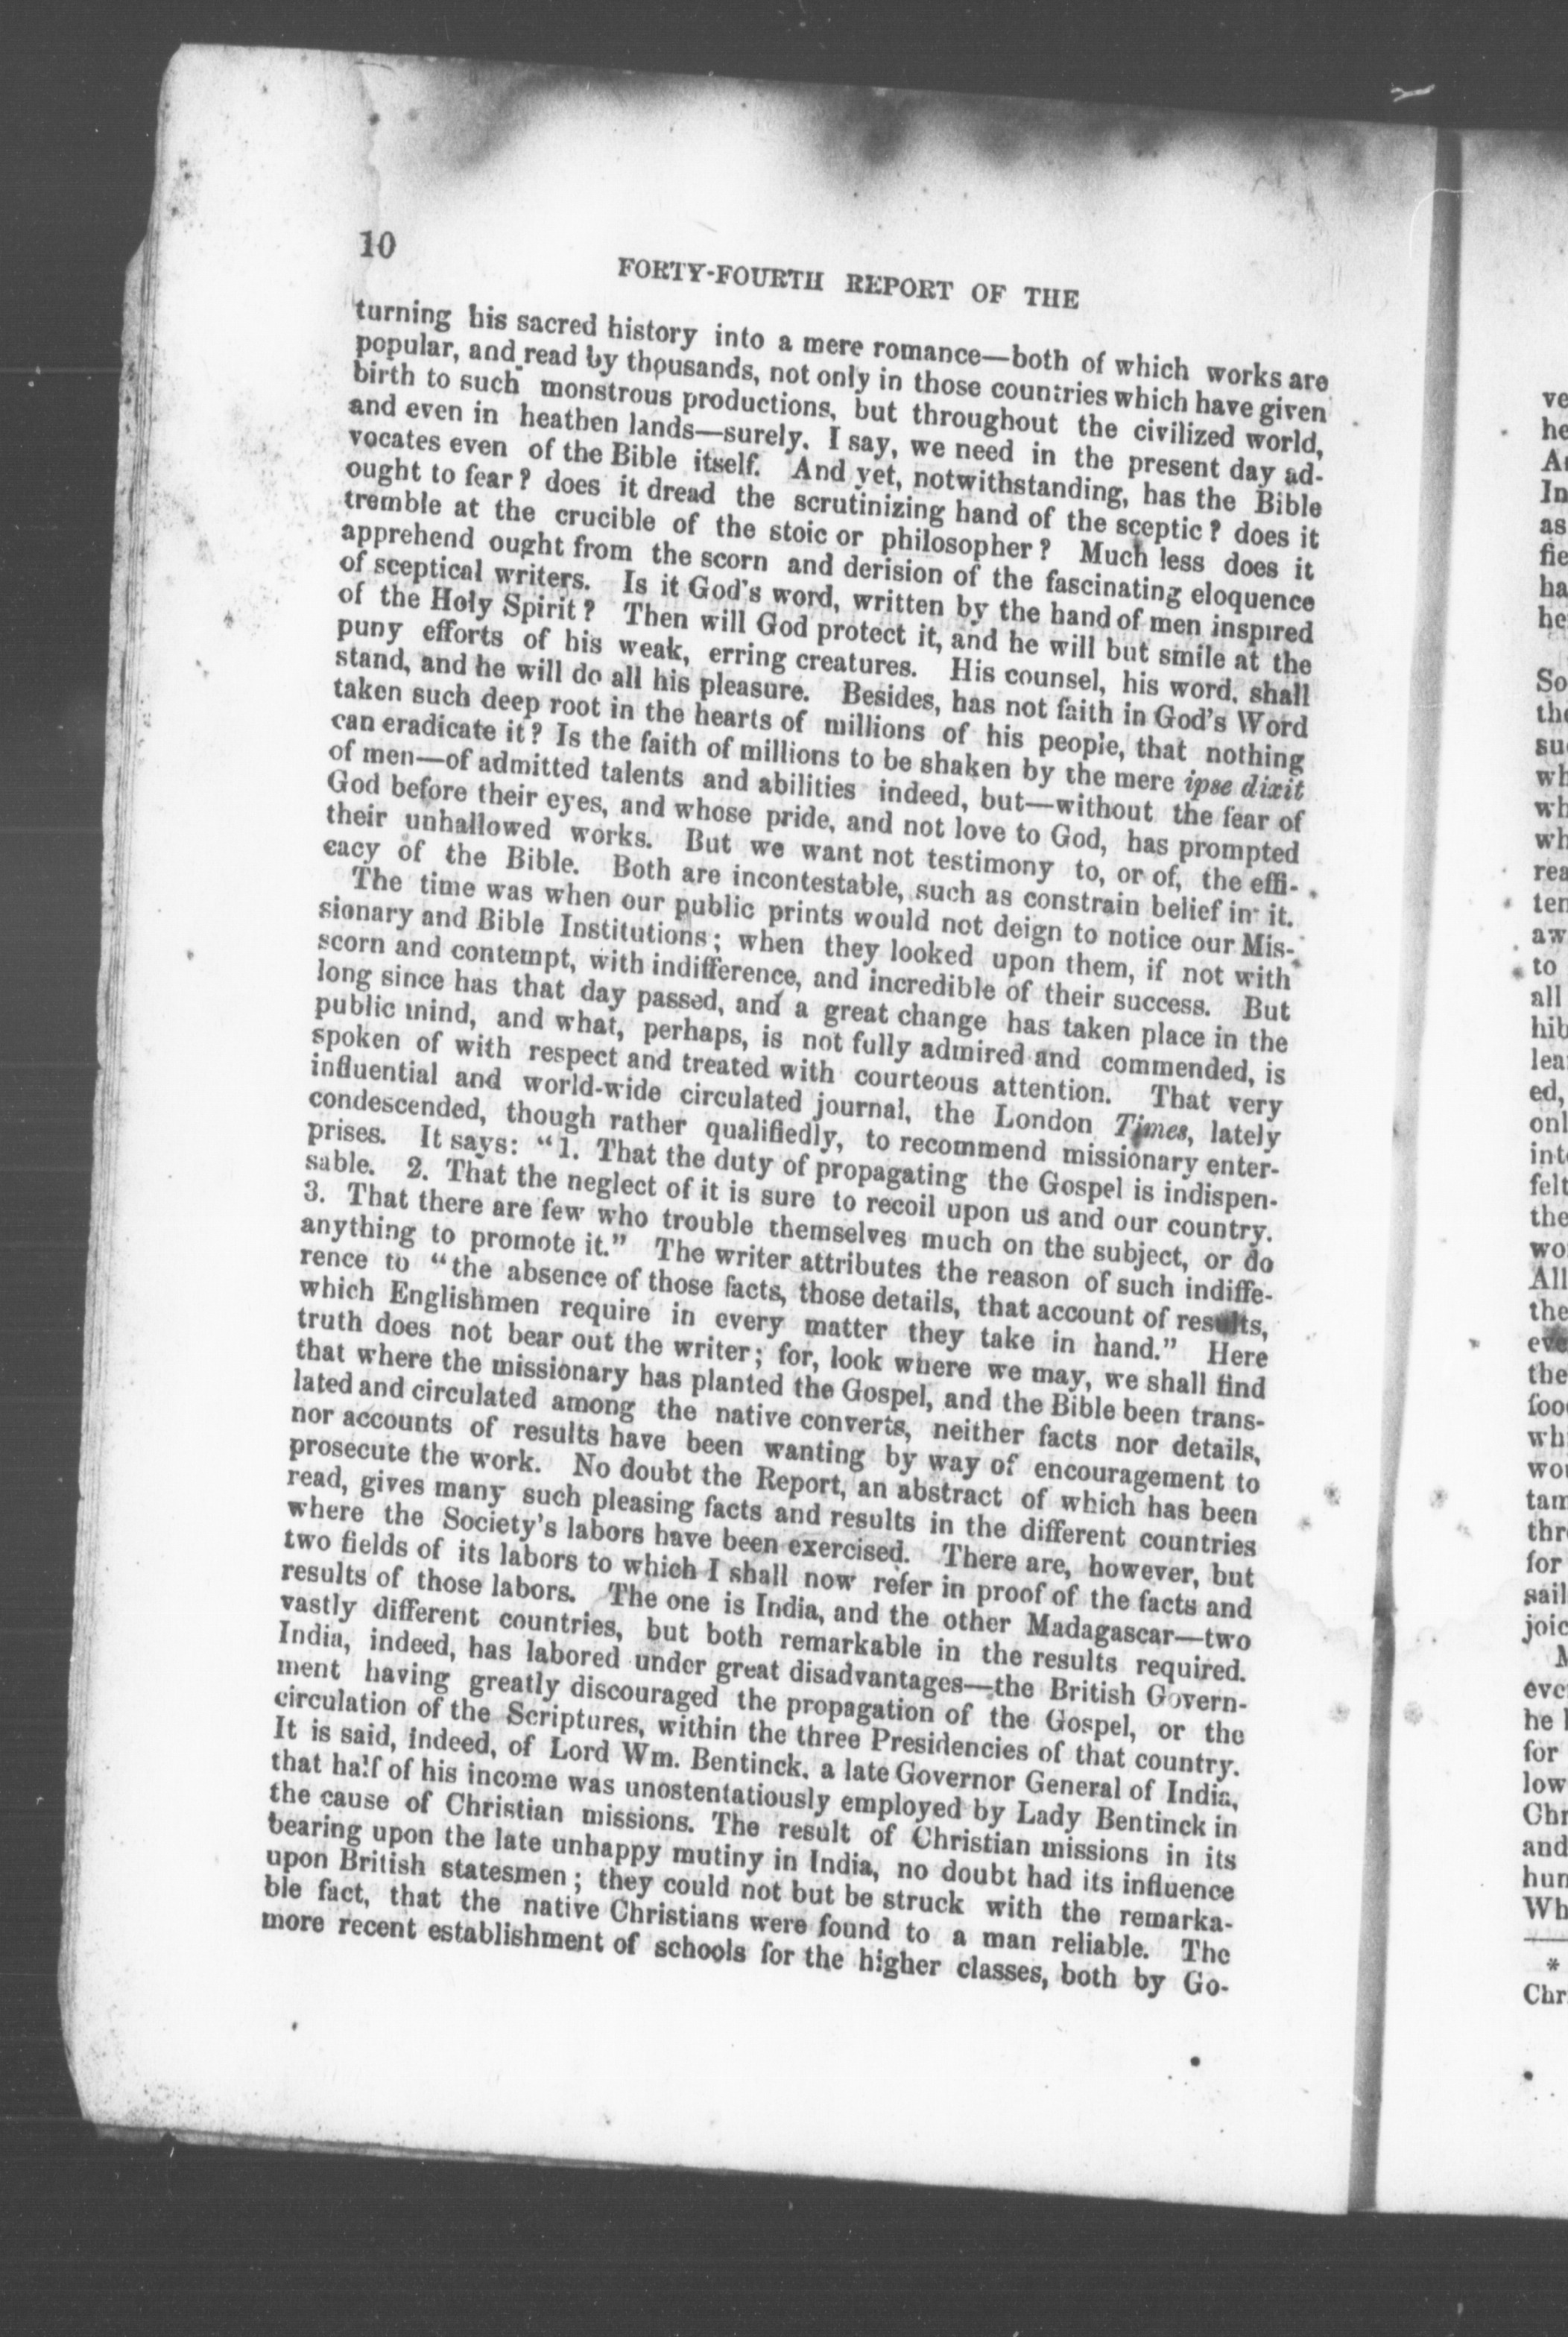 10
FORTY-FOURTH REPORT OF THE
turning his sacred history into a mere romance—both of which works are
popular, and read by thousands, not only in those countries which have given
birth to such monstrous productions, but throughout the civilized world,
and even in heathen lands—surely, I say, we need in the present day ad-
vocates even of the Bible itself. And yet, notwithstanding, has the Bible
ought to fear? does it dread the scrutinizing hand of the sceptic? does it
tremble at the crucible of the stoic or philosopher? Much less does it
apprehend ought from the scorn and derision of the fascinating eloquence
of sceptical writers. Is it God's word, written by the hand of men inspired
of the Holy Spirit? Then will God protect it, and he will but smile at the
puny efforts of his weak, erring creatures. His counsel, his word, shall
stand, and he will do all his pleasure. Besides, has not faith in God's Word
taken such deep root in the hearts of millions of his people, that nothing
can eradicate it? Is the faith of millions to be shaken by the mere ipse dixit
of men—of admitted talents and abilities indeed, but—without the fear of
God before their eyes, and whose pride, and not love to God, has prompted
their unhallowed works. But we want not testimony to, or of, the effi-
cacy of the Bible. Both are incontestable, such as constrain belief in it.
The time was when our public prints would not deign to notice our Mis-
sionary and Bible Institutions; when they looked upon them, if not with
scorn and contempt, with indifference, and incredible of their success. But
long since has that day passed, and a great change has taken place in the
public mind, and what, perhaps, is not fully admired and commended, is
spoken of with respect and treated with courteous attention. That very
influential and world-wide circulated journal, the London Times, lately
condescended, though rather qualifiedly, to recommend missionary enter-
prises. It says: "1. That the duty of propagating the Gospel is indispen-
sable. 2. That the neglect of it is sure to recoil upon us and our country.
3. That there are few who trouble themselves much on the subject, or do
anything to promote it." The writer attributes the reason of such indiffe-
rence to "the absence of those facts, those details, that account of results,
which Englishmen require in every matter they take in hand." Here
truth does not bear out the writer; for, look where we may, we shall find
that where the missionary has planted the Gospel, and the Bible been trans-
lated and circulated among the native converts, neither facts nor details,
nor accounts of results have been wanting by way of encouragement to
prosecute the work. No doubt the Report, an abstract of which has been
read, gives many such pleasing facts and results in the different countries
where the Society's labors have been exercised. There are, however, but
two fields of its labors to which I shall now refer in proof of the facts and
results of those labors. The one is India, and the other Madagascar—two
vastly different countries, but both remarkable in the results required.
India, indeed, has labored under great disadvantages—the British Govern-
ment having greatly discouraged the propagation of the Gospel, or the
circulation of the Scriptures, within the three Presidencies of that country.
It is said, indeed, of Lord Wm. Bentinck, a late Governor General of India,
that half of his income was unostentatiously employed by Lady Bentinck in
the cause of Christian missions. The result of Christian missions in its
bearing upon the late unhappy mutiny in India, no doubt had its influence
upon British statesmen; they could not but be struck with the remarka-
ble fact, that the native Christians were found to a man reliable. The
more recent establishment of schools for the higher classes, both by Go-